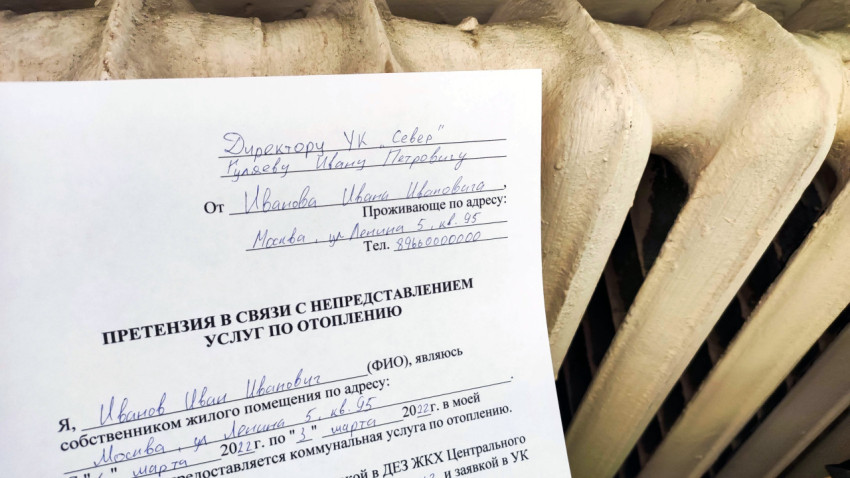 Директору УК „Север"
Гуляеву Ивану Петровичу
От Иванова Ивана Ивановича,
Проживающе по адресу:
Москва, ул Ленина 5, кв. 95
Тел. 89660000000
ПРЕТЕНЗИЯ В СВЯЗИ С НЕПРЕДСТАВЛЕНИЕМ
УСЛУГ ПО ОТОПЛЕНИЮ
Я, Иванов Иван Иванович (ФИО), являюсь
собственником жилого помещения по адресу:
Москва, ул Ленина 5, кв. 95.
марта 2022г. по "3" марта 2022г. в моей
предоставляется коммунальная услуга по отоплению.
в ДЕЗ ЖКХ Центрального
и заявкой в УК